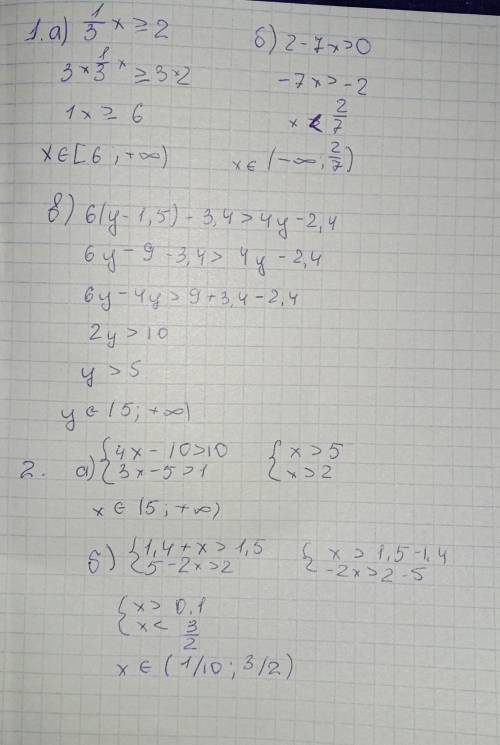 1. а) 1/3 x ≥ 2
3 × 1/3 x ≥ 3×2
1x ≥ 6
x ∈ [6 ; +∞)
б) 2-7x>0
-7x > -2
x < 2/7
x ∈ (-∞; 2/7)
в) 6(y-1,5) - 3,4 > 4y-2,4
6y - 9 - 3,4 > 4y - 2,4
6y - 4y > 9 + 3,4 - 2,4
2y > 10
y > 5
y ∈ (5 ; +∞)
2. а) { 4x - 10 > 10 { x > 5
3x - 5 > 1 x > 2
x ∈ (5 ; +∞)
б) { 1,4 + x > 1,5 { x > 1,5 - 1,4
5 - 2x > 2 -2x > 2 - 5
{ x > 0,1
x < 3/2
x ∈ (1/10 ; 3/2)